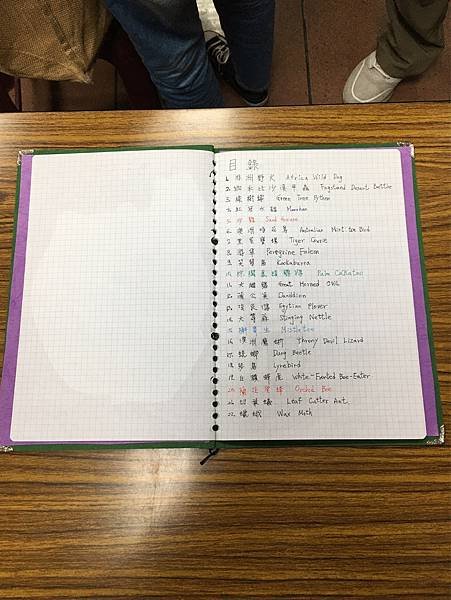 目錄
1. 非洲野犬 Africa Wild Dog
2. 納米比沙漠甲蟲 Fogstand Desert Bettle
3. 綠樹蟒 Green Tree Python
4. 紅冠水雞 Moorhen
5. 沙雞 Sand Grouse
6. 澳洲 鳥 Australian Bird
7. 黑寶螺 Tiger Cowrie
8. 遊隼 Peregrine Falcon
9. 笑翠鳥 Kookaburra
10. 棕櫚鳳頭鸚鵡 Palm Cockatoo
11. 大鵰鴞 Great Horned Owl
12. 蒲公英 Dandilion
13. 埃及鴴 Egytian Plover
14. 大蕁麻 Stinging Nettle
15. 槲寄生 Mistletoe
16. 澳洲魔蜥 Thorny Devil Lizard
17. 蜣螂 Dung Beetle
18. 琴鳥 Lyrebird
19. 白額蜂虎 White-Fronted Bee-Eater
20. 蘭花蜜蜂 Orchid Bee
21. 切葉蟻 Leaf Cutter Ant
22. 蠟蛾 Wax Moth